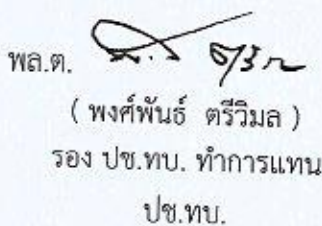 พล.ต.
( พงศ์พันธ์ ตรีวิมล )
รอง ปช.ทบ. ทำการแทน
ปช.ทบ.